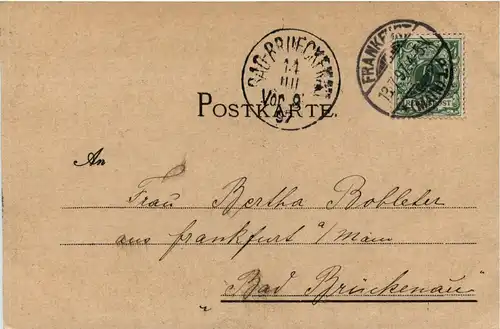 BAD-BRUECKENAU
14
VII
Vor 8
97
FRANKFURT
(MAIN)
POSTKARTE.
An
Frau Bertha Bobleter
aus Frankfurt a/Main
„Bad Brückenau"